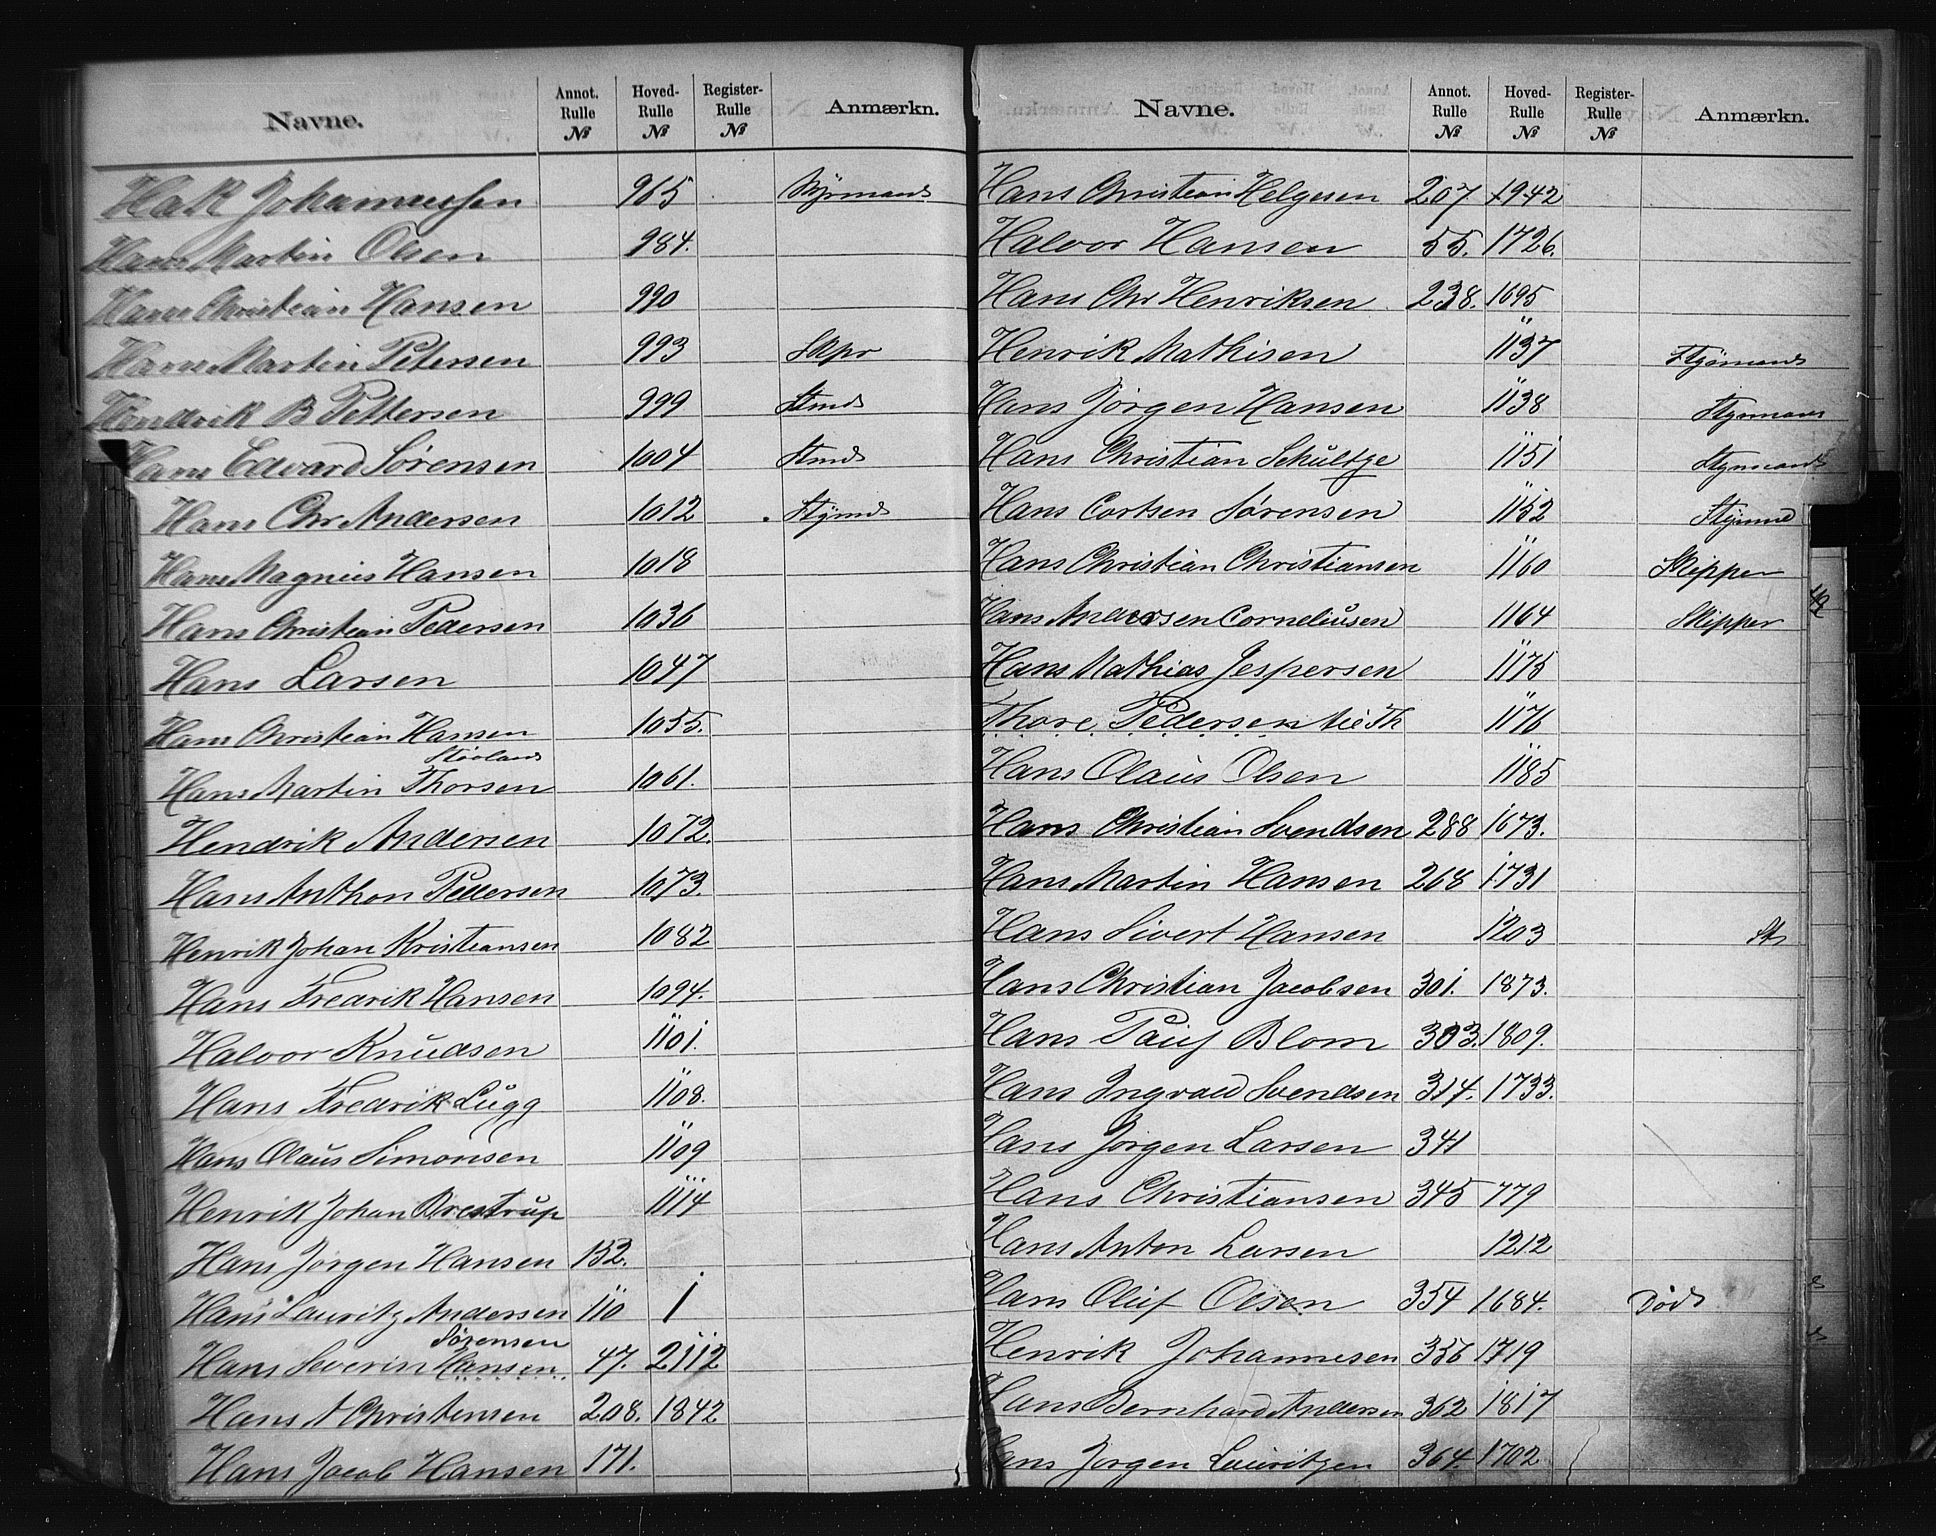 Navne. Annot. Rulle № Hoved-Rulle № Register-Rulle № Anmærkn.
Hak Johannessen 965 Styrmand
Hans Martin Olsen 984.
Hans Christian Hansen 990
Hans Martin Petersen 993 Skpr
Hendrik B Pettersen 999 Stmd
Hans Edvard Sørensen 1004 Stmd
Hans Chr Andersen 1012 Stymd
Hans Magnius Hansen 1018
Hans Christian Pedersen 1036
Hans Larsen 1047
Hans Christian Hansen 1055.
Støvland
Hans Martin Thorsen 1061.
Hendrik Andersen 1072.
Hans Anthon Pedersen 1073.
Henrik Johan Kristiansen 1082
Hans Fredrik Hansen 1094.
Halvor Knudsen 1101.
Hans Fredrik Lugg 1108.
Hans Olaus Simonsen 1109
Henrik Johan Brestrup 1114
Hans Jørgen Hansen 152.
Hans Lauritz Andersen 110 1
Sørensen
Hans Severin Hansen 47. 2112
Hans A Christensen 208. 1842
Hans Jacob Hansen 171.
Navne. Annot. Rulle № Hoved-Rulle № Register-Rulle № Anmærkn.
Hans Christian Helgesen 207. 1942
Halvor Hansen 55. 1726.
Hans Chr Henriksen 238. 1695
Henrik Mathisen 1137 Styrmand
Hans Jørgen Hansen 1138 Styrmand
Hans Christian Schultze 1151 Styrmand
Hans Cortsen Sørensen 1152 Styrmd
Hans Christian Christiansen 1160 Skipper
Hans Andersen Corneliusen 1164 Skipper
Hans Mathias Jespersen 1175
Thore Pedersen til Th 1176
Hans Olaus Olsen 1185
Hans Christian Svendsen 288 1673.
Hans Martin Hansen 268 1731
Hans Sivert Hansen 1203 St
Hans Christian Jacobsen 301. 1873.
Hans Blom 303. 1809.
Hans Ingvald Svendsen 314. 1733.
Hans Jørgen Larsen 341
Hans Christiansen 345 779
Hans Anton Larsen 1212
Hans Oluf Olsen 354 1684. Død
Henrik Johannesen 356 1719
Hans Bernhard Andersen 362 1817
Hans Jørgen Lauritzen 364. 1702